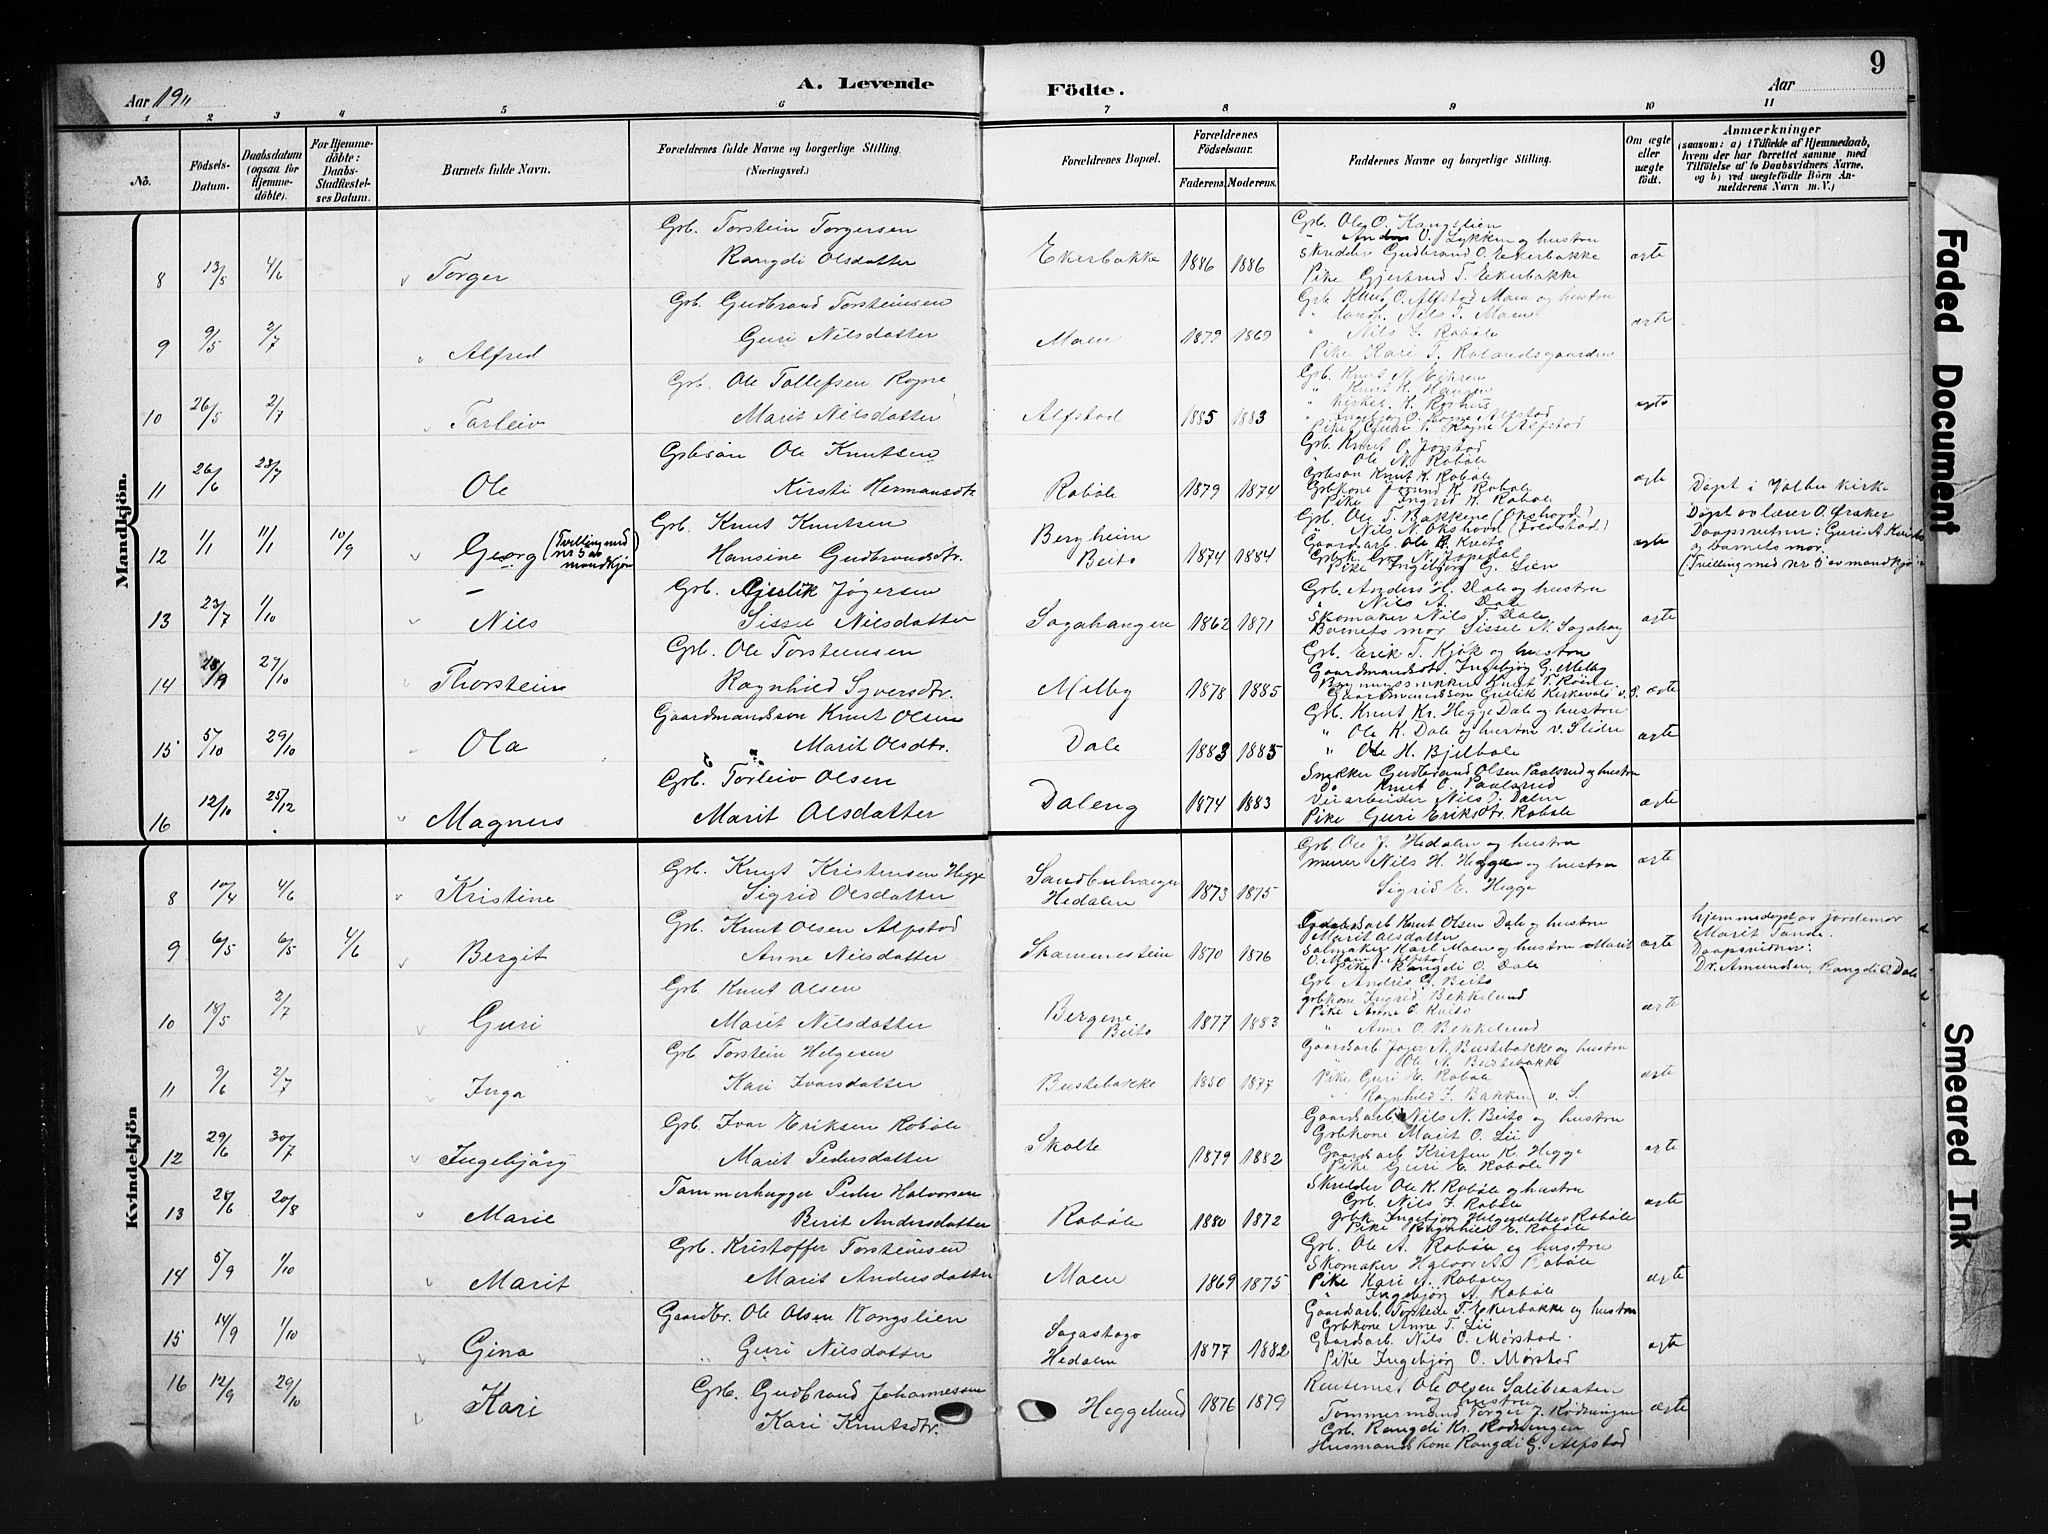 Aar 1911
A. Levende Födte.
Aar
9
1 2 3 4 5 6 7 8 9 10 11
No.
Födsels-Datum.
Daabsdatum (ogsaa for Hjemmedöbte).
For Hjemmedöbte: Daabs-Stadfæstelses Datum.
Barnets fulde Navn.
Forældrenes fulde Navne og borgerlige Stilling. (Næringsvei.)
Forældrenes Bopæl.
Forældrenes Födselsaar.
Faderens. Moderens.
Faddernes Navne og borgerlige Stilling.
Om ægte eller uægte födt.
Anmærkninger
(saasom: a) i Tilfælde af Hjemmedaab, hvem der har forrettet samme med Tilföielse af to Daabsvidners Navne, og b) ved uægtefödte Börn Anmelderens Navn m. V.)
Mandkjön.
8 13/5 4/6 Torger Grb. Torstein Torgersen
Rangdi Olsdatter Ekerbakke 1886 1886 ægte
Grb. Ole O. Kangslien
" Anders O. Lykken og hustru
Skredder Gudbrand O. Ekerbakke
Pike Gjertrud T. Ekerbakke
9 9/5 2/7 Alfred Grb. Gudbrand Torsteinsen
Guri Nilsdatter Moen 1879 1869 ægte
Grb. Knut O. Alfstad Moen og hustru
" Nils T. Moen
" Nils E. Robøle
Pike Kari T. Rolandsgaarden
10 26/5 2/7 Torleiv Grb. Ole Tollefsen Rogne
Marit Nilsdatter Alfstad 1885 1883 ægte
Grb. Knut A. Eikren
" Knut K. Hausen
Pike Guri T. Rogne Alfstad
11 26/6 23/7 Ole Grbsøn Ole Knutsen
Kirsti Hermansdtr. Robøle 1879 1874 ægte
Grb. Knut O. Jørstad
" Ole N. Robøle
Grbsøn Knut K. Robøle
Grbkone Jørund K. Robøle
Pike Ingrid K. Robøle
Døpt i Volbu kirke
12 1/1 11/1 10/9 Georg (Tvilling med nr 5 av mandkjøn)
Grb. Knut Knutsen
Hansine Gudbrandsdtr. Bergheim Beito 1874 1884 ægte
Grb. Ole T. Bakkene (Okshovd)
Nils N. Okshovd (Fredstad)
Gaardsarb. Ole B. Kveito
Pike Ingebjørg G. Lien
Døpt av lærer O. Øraker
Daapsvidner: Guri A. Kveito
og barnets mor.
(Tvilling med nr 5 av mandkjøn
13 23/7 1/10 Nils Grb. Gjerlik Jøgersen
Sissel Nilsdatter Sagahaugen 1862 1871 ægte
Grb. Anders H. Dale og hustru
" Nils A. Dale
Skomaker Nils T. Dale
Barnets mor Sissel N. Sagahaug
14 18/9 29/10 Thorstein Grb. Ole Torsteinsen
Ragnhild Syversdtr. Melby 1878 1885 ægte
Grb. Erik T. Kjøk og hustru
Gaardmandsdtr. Ingebjøg G. Melby
Gaardmandssøn Gullik Kirkevold v. S.
15 5/10 29/10 Ola Gaardmandssøn Knut Olsen
" Marit Olsdtr. Dale 1883 1885 ægte
Grb. Knut Kr. Hegge Dale og hustru
" Ole K. Dale og hustru v. Slidre
" Ole H. Bjelbøle
16 12/10 25/12 Magnus Grb. Torleiv Olsen
Marit Olsdatter Daleng 1874 1883 ægte
Snekker Gudbrand Olsen Paalsrud og hustru
Do Knut O. Paalsrud
Veiarbeider Nils J. Dalen
Pike Guri Eriksdtr. Robøle
Kvindekjön
8 10/4 4/6 Kristine Grb. Knut Kristensen Hegge
Sigrid Olsdatter Sandbuhaugen Hedalen 1873 1875 ægte
Grb. Ole J. Hedalen og hustru
murer Nils H. Hegge og hustru
Sigrid E. Hegge
9 6/5 6/5 4/6 Bergit Grb. Knut Olsen Alfstad
Anne Nilsdatter Skammestein 1870 1876 ægte
Gaardsarb Knut Olsen Dale og hustru
Marit Olsdatter
Salmaker Karl Moen og hustru Marit
O. Moen f. Alfstad
Pike Rangdi O. Dale
hjemmedøpt av jordemor
Marit Tande.
Daapsvidner:
Dr. Amundsen, Rangdi O. Dale
10 18/5 2/7 Guri Grb. Knut Olsen
Marit Nilsdatter Bergene Beito 1877 1883 ægte
Grb. Andris G. Beito
grbkone Ingrid Bekkelund
Pike Anne O. Kveito
" Anne O. Bekkelund
11 9/6 2/7 Inga Grb. Torstein Helgesen
Kari Ivarsdatter Bustebakke 1850 1877 ægte
Gaardsarb Jøger N. Bustebakke og hustru
" Ole N. Bustebakke
Pike Guri E. Robøle
" Ragnhild J. Bakken v. S.
12 29/6 30/7 Ingebjørg Grb. Ivar Eriksen Robøle
Marit Pedersdatter Skolte 1879 1882 ægte
Gaardsarb. Nils N. Beito og hustru
Grbkone Marit O. Lii
Gaardsarb Kristen K. Hegge
Pike Guri E. Robøle
13 28/6 20/8 Marie Tømmerhugger Peder Halvorsen
Berit Andersdatter Robøle 1880 1872 ægte
Skredder Ole K. Robøle og hustru
Grb. Nils J. Robøle
grbk. Ingebjørg Helgesdatter Robøle
Pike Ragnhild E. Robøle
14 5/9 1/10 Marit Grb. Kristoffer Torsteinsen
Marit Andersdatter Moen 1869 1875 ægte
Grb. Ole A. Robøle og hustru
Skomaker Halvor A. Robøle
Pike Kari A. Robøle
" Ingebjørg A. Robøle
15 14/9 1/10 Gina Gaardbr. Ole Olsen Kongslien
" Guri Nilsdatter Sagastogo Hedalen 1877 1882 ægte
Gaardsarb. Torstein T. Ekerbakke og hustru
Grbkone Anne T. Lii
Gaardsarb. Nils O. Mørstad.
Pike Ingebjørg O. Mørstad
16 12/9 29/10 Kari Grb. Gudbrand Johannessen
Kari Knutsdtr. Heggelund 1876 1879 ægte
Ole Olsen Salibraaten
og hustru
Tømmermand Torger J. Rødningen
Grb. Rangdi Kr. Rødningen
Husmandskone Rangdi G. Alfstad
Faded Document
Smeared Ink